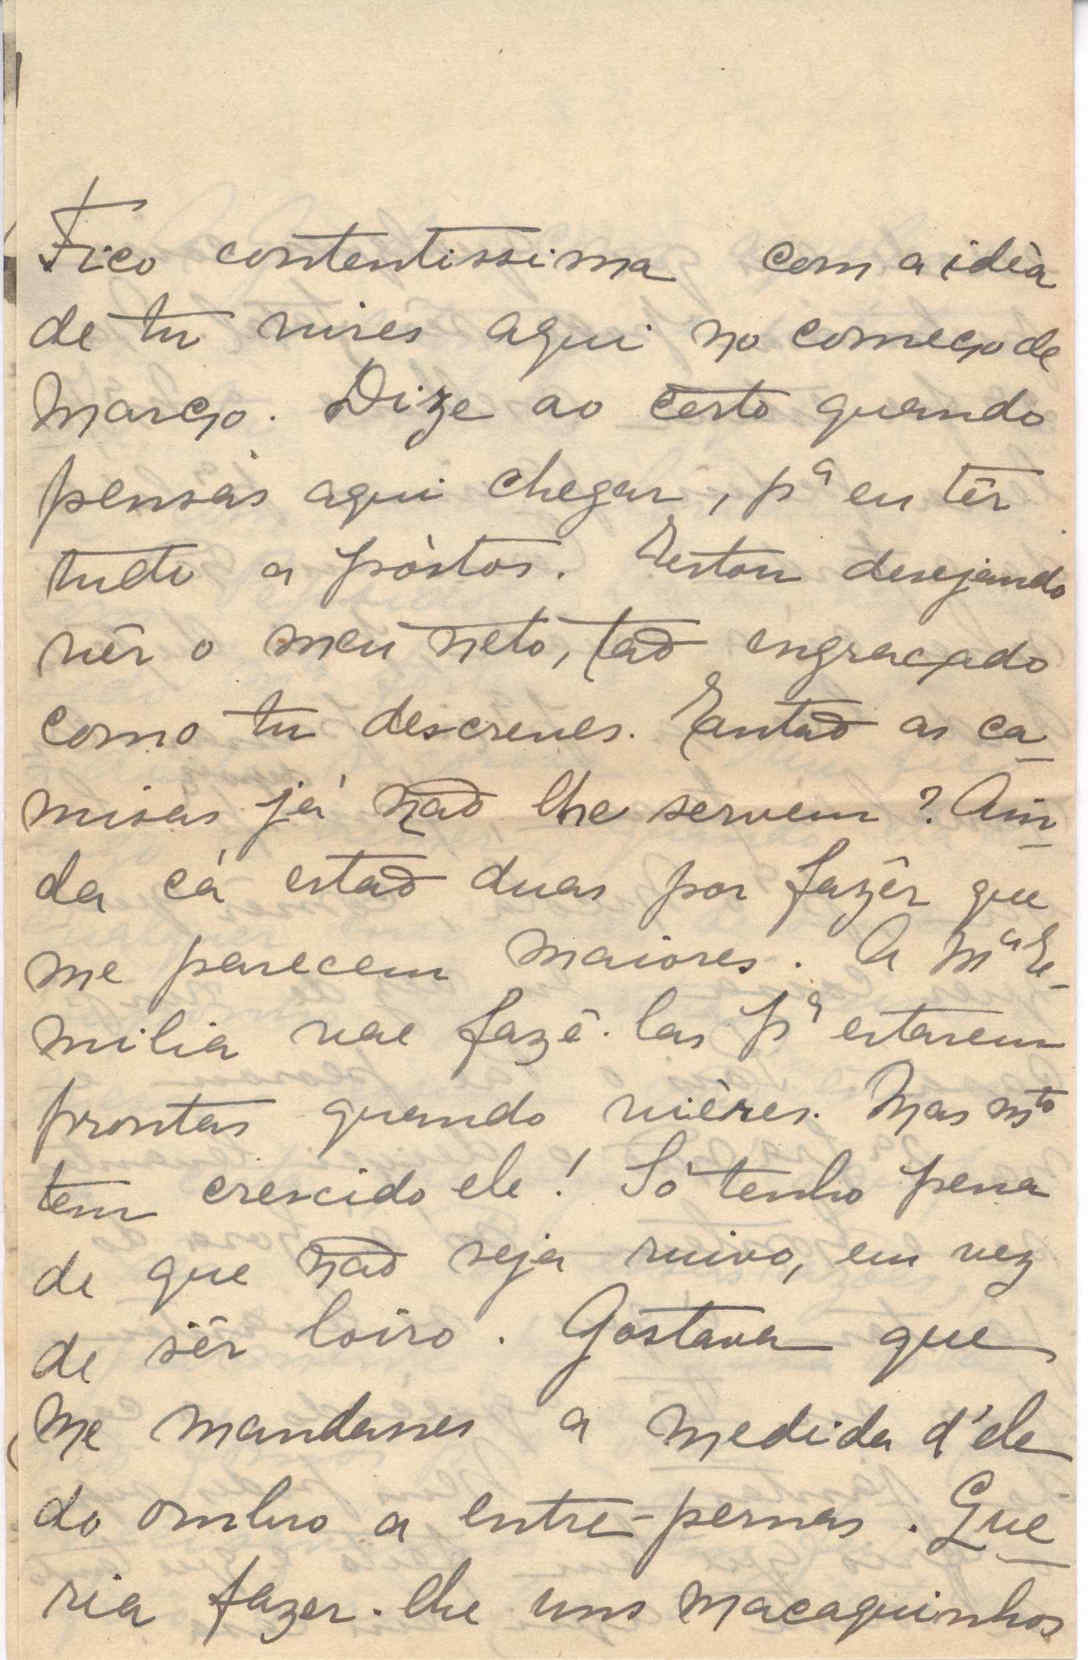 Fico contentissima com a idèa
de tu vires aqui no começo de
Março. Dize ao cèrto quando
pensas aqui chegar, pª eu têr
tudo a pòstos. Estou desejando
vêr o meu neto, tão engraçado
como tu descreves. Então as ca-
misas já não lhe servem? Ain-
da cá estão duas por fazêr que
me parecem maiores. A Mª E-
milia vae fazê-las pª estarem
prontas quando vières. Mas mto
tem crescido ele! Só tenho pena
de que não seja ruivo, em vez
de sêr loiro. Gostava que
me mandasses a medida d'ele
do ombro a entre-pernas. Que-
ria fazer-lhe uns macaquinhos